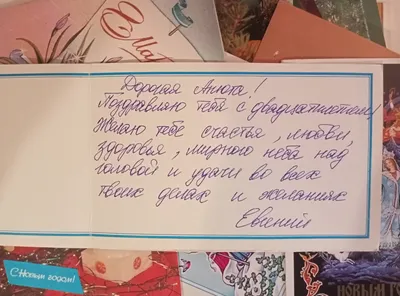 8 Марта
Дорогая Анюта!
Поздравляю тебя с двадцатилетием!
Желаю тебе счастья, любви,
здоровья, мирного неба над
головой и удачи во всех
твоих делах и желаниях
Евгений
С Новым годом!
НОВЫМ ГО